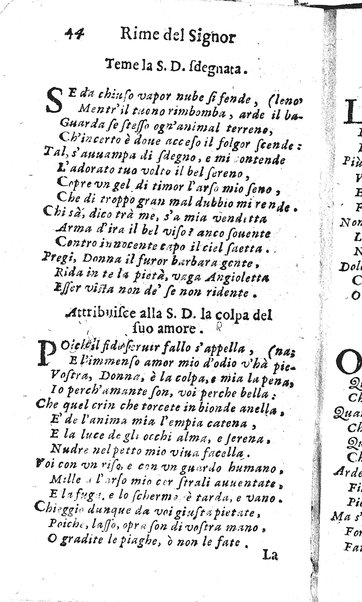 44 Rime del Signor
Teme la S. D. sdegnata.
SE da chiuso vapor nube si fende, (leno
Mentr'il tuono rimbomba, arde il ba-
Guarda se stesso ogn'animal terreno,
Ch'incerto è doue acceso il folgor scende:
Tal, s'auuampa di sdegno, e mi contende
L'adorato tuo volto il bel sereno,
Copre vn gel di timor l'arso mio seno,
Che di troppo gran mal dubbio mi rende.
Chi sà, dico trà me, s'a mia vendetta
Arma d'ira il bel viso? anco souente
Contro innocente capo il ciel saetta.
Pregi, Donna il furor barbara gente,
Rida in te la pietà, vaga Angioletta
Esser vista non de' se non ridente.
Attribuisce alla S. D. la colpa del
suo amore.
POiche il fido seruir fallo s'appella, (na;
E l'immenso amor mio d'odio v'hà pie-
Vostra, Donna, è la colpa, e mia la pena,
Io perch'amante son, voi perche bella:
Che quel crin che torcete in bionde anella,
E' de l'anima mia l'empia catena,
E la luce de gli occhi alma, e serena,
Nudre nel petto mio viua facella.
Voi con vn riso, e con vn guardo humano,
Mille a l'arso mio cor strali auuentate,
E la fuga, e lo schermo è tarda, e vano.
Chieggio dunque da voi giusta pietate,
Poiche, lasso, opra son di vostra mano,
O gradite le piaghe, ò non le fate.
La